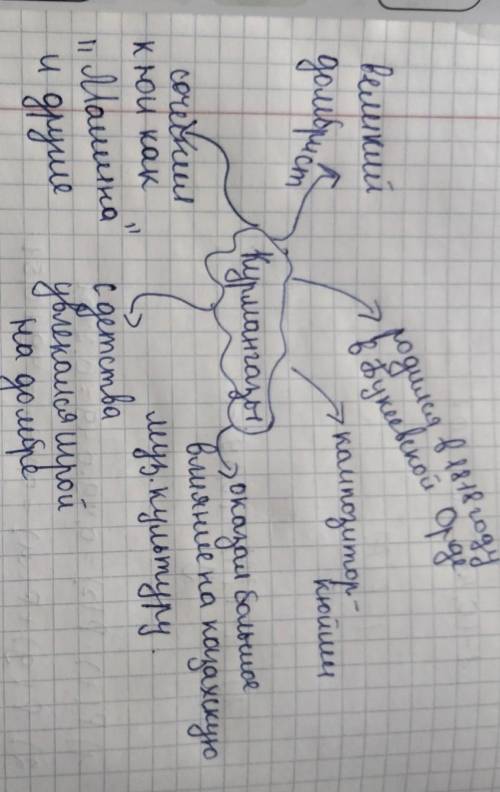 великий
домбрист
родился в 1818 году
в Букеевской Орде
Курмангазы
композитор-
кюйши
сочетил
кюи как
"Машина"
и другие
с детства
увлекался игрой
на домбре
оказал большое
влияние на казахскую
муз. культуру.